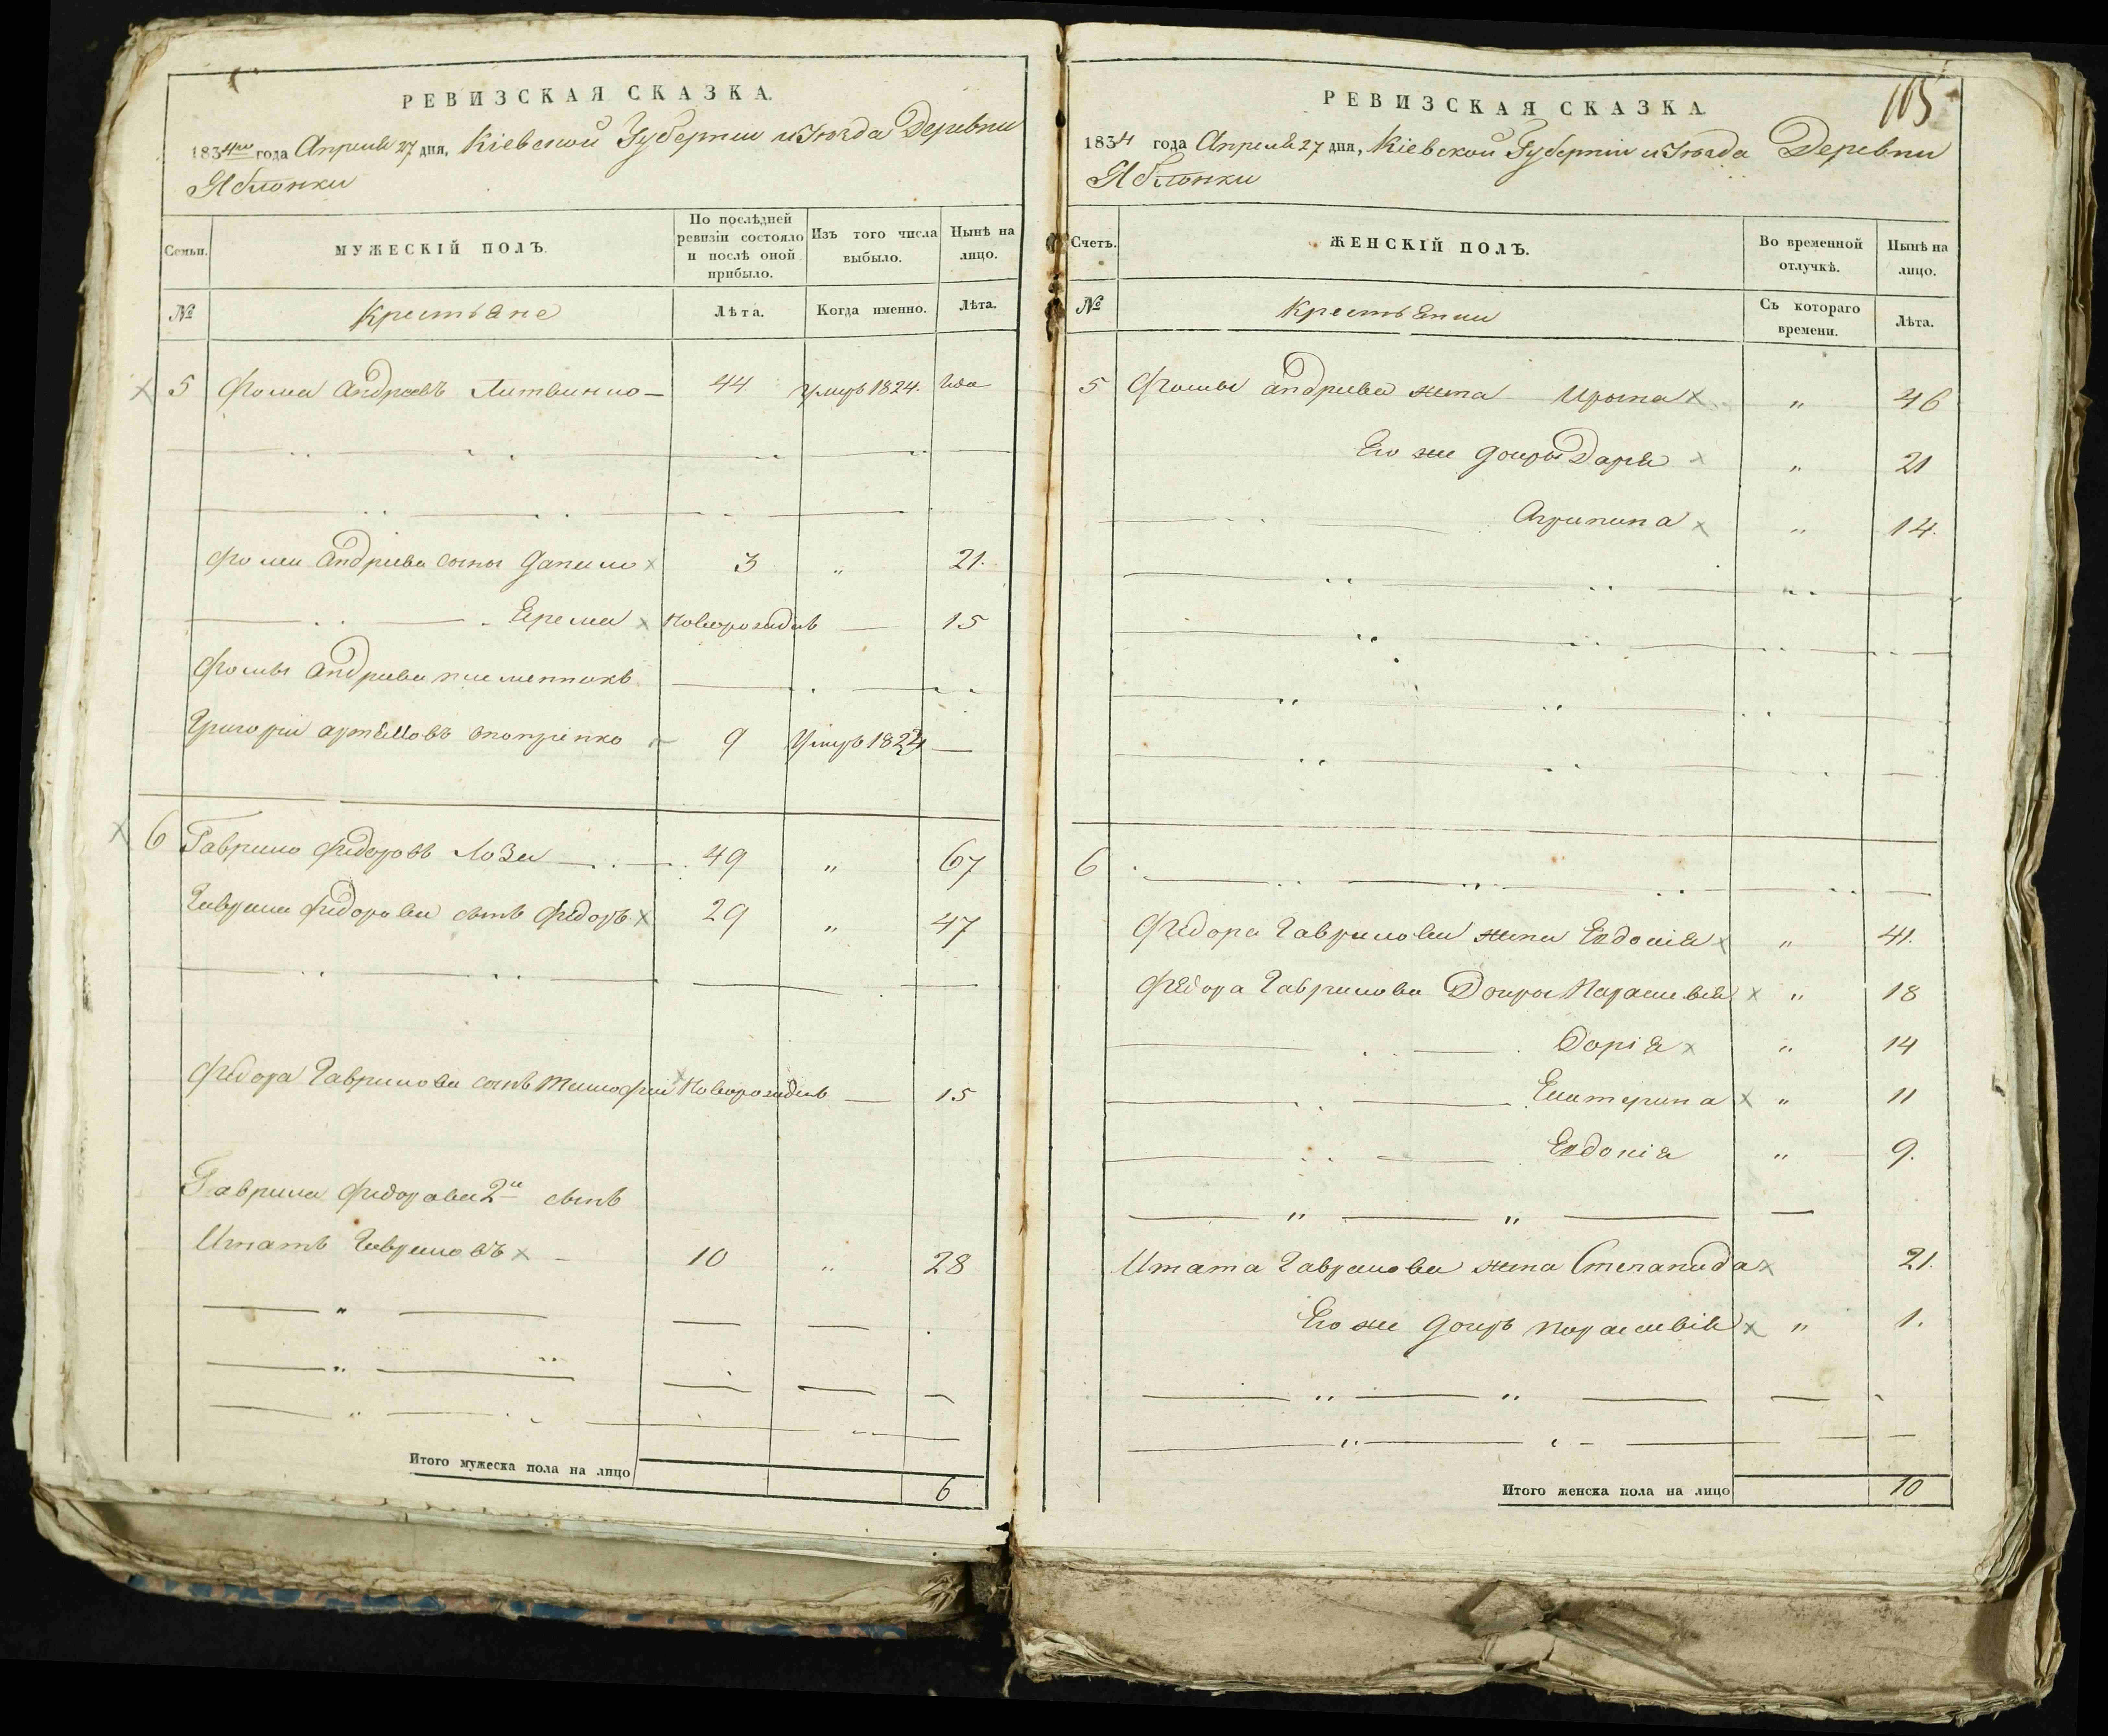 РЕВИЗСКАЯ СКАЗКА.
1834го года Апреля 27 дня, Кіевской Губерніи и Уѣзда Деревни
Яблонки
Семьи. МУЖЕСКІЙ ПОЛЪ. По послѣдней ревизіи состояло и послѣ оной прибыло. Изъ того числа выбыло. Нынѣ на лицо.
№ Крестьяне Лѣта. Когда именно. Лѣта.
5 Фома Андреевъ 44 Умеръ 1824. года
Фомы Андреева сынъ Данило 3 " 21.
Ерема новорожденъ 15
Фомы Андреева племянникъ
Григорій 9 Умеръ 1824
6 Гаврило Федоровъ Лоза 49 " 67
Гаврила Федорова сынъ Федоръ 29 " 47
Федора Гаврилова сынъ Тимофей Новорожденъ 15
Гаврила Федорова 2й сынъ
Игнатъ Гавриловъ 10 " 28
Итого мужеска пола на лицо 6
РЕВИЗСКАЯ СКАЗКА
105
1834 года Апреля 27 дня, Кіевской Губерніи и Уѣзда Деревни
Яблонки
Счетъ. ЖЕНСКІЙ ПОЛЪ. Во временной отлучкѣ. Нынѣ на лицо.
№ Съ котораго времени. Лѣта.
5 Фомы Андреева жена " 46
Его же дочеры Дарія " 21
Агрипина " 14.
6
Федора Гаврилова жена Евдокія " 41.
Федора Гаврилова Дочеры Параскевія " 18
Дарія " 14
Екатерина " 11
Евдокія " 9.
Игната Гаврилова жена Степанида 21.
Его же дочеръ Параскевія " 1.
Итого женска пола на лицо 10